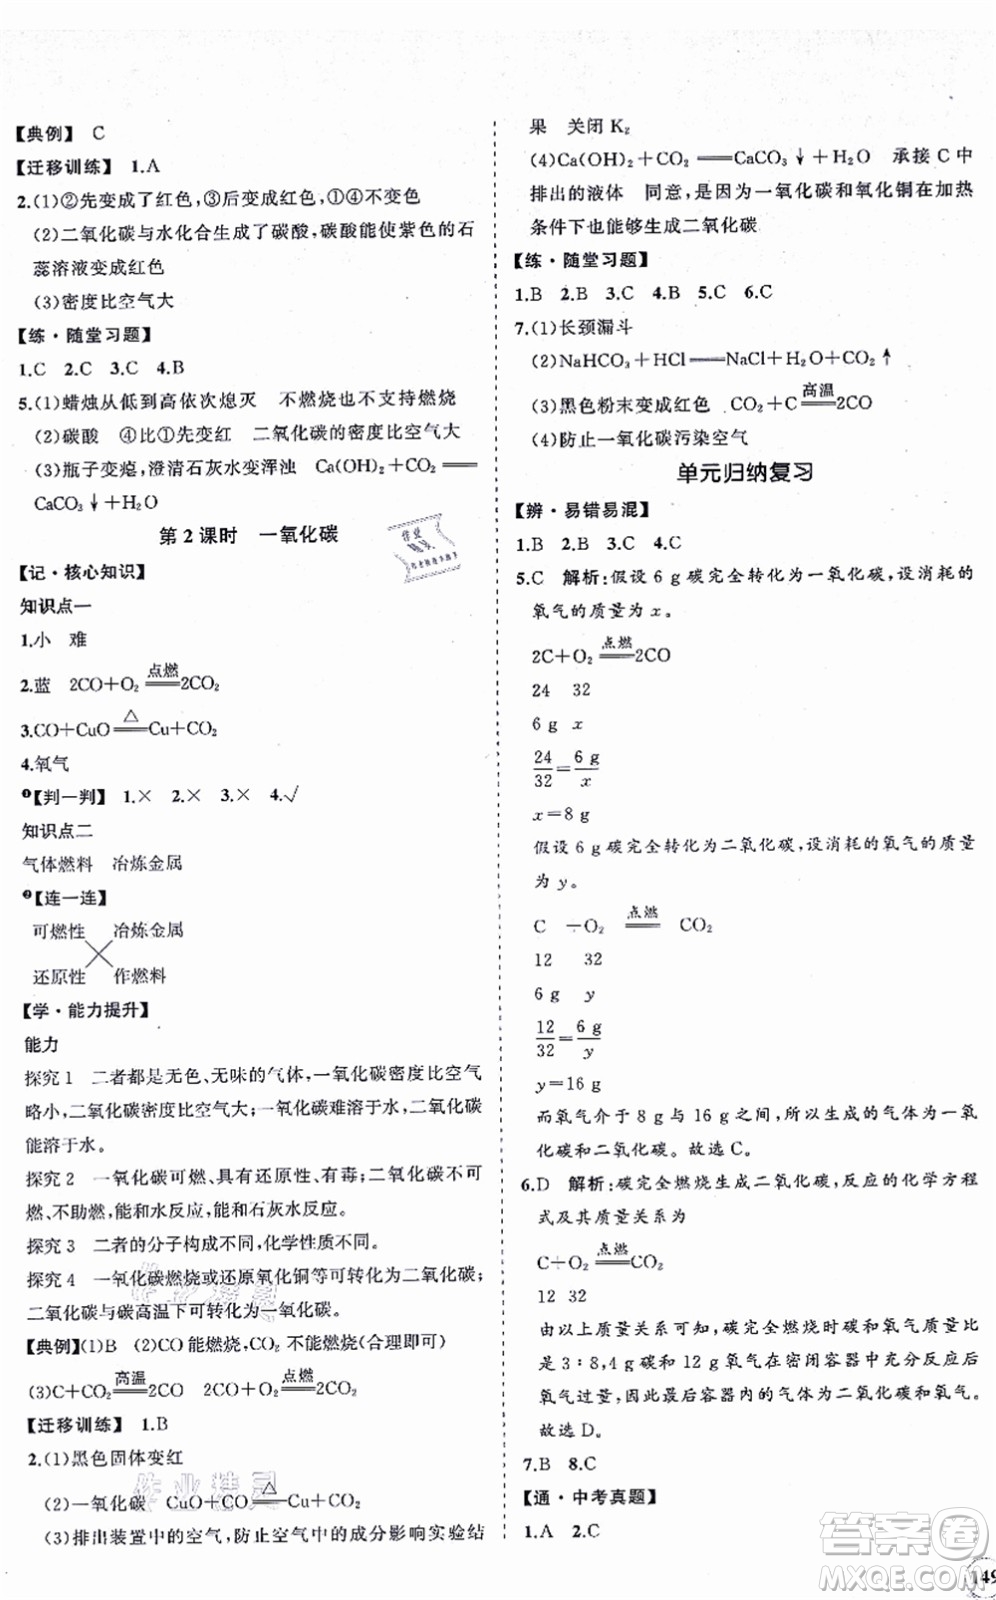 【典例】 C
【迁移训练】 1.A
2.(1)②先变成了红色,③后变红色,①④不变色
(2)二氧化碳与水化合生成了碳酸,碳酸能使紫色的石
蕊溶液变成红色
(3)密度比空气大
【练·随堂习题】
1.C 2.C 3.C 4.B
5.(1)蜡烛从低到高依次熄灭 不燃烧也不支持燃烧
(2)碳酸 ④比①先变红 二氧化碳的密度比空气大
(3)瓶子变瘪,澄清石灰水变浑浊 Ca(OH)₂+CO₂══
CaCO₃↓+H₂O
第2课时 一氧化碳
【记·核心知识】
知识点一
1.小 难
2.蓝 2CO+O₂ 点燃══ 2CO₂
3.CO+CuO △══ Cu+CO₂
4.氧气
❶【判一判】 1.× 2.× 3.× 4.√
知识点二
气体燃料 冶炼金属
❷【连一连】
可燃性 冶炼金属
还原性 作燃料
【学·能力提升】
能力
探究1 二者都是无色、无味的气体,一氧化碳密度比空气
略小,二氧化碳密度比空气大;一氧化碳难溶于水,二氧化碳
能溶于水。
探究2 一氧化碳可燃、具有还原性、有毒;二氧化碳不可
燃、不助燃,能和水反应,能和石灰水反应。
探究3 二者的分子构成不同,化学性质不同。
探究4 一氧化碳燃烧或还原氧化铜等可转化为二氧化碳;
二氧化碳与碳高温下可转化为一氧化碳。
【典例】(1)B (2)CO能燃烧,CO₂不能燃烧(合理即可)
(3)C+CO₂ 高温══ 2CO 2CO+O₂ 点燃══ 2CO₂
【迁移训练】 1.B
2.(1)黑色固体变红
(2)一氧化碳 CuO+CO △══ Cu+CO₂
(3)排出装置中的空气,防止空气中的成分影响实验结
果 关闭K₂
(4)Ca(OH)₂+CO₂══CaCO₃↓+H₂O 承接C中
排出的液体 同意,是因为一氧化碳和氧化铜在加热
条件下也能够生成二氧化碳
【练·随堂习题】
1.B 2.B 3.C 4.B 5.C 6.C
7.(1)长颈漏斗
(2)NaHCO₃+HCl══NaCl+H₂O+CO₂↑
(3)黑色粉末变成红色 CO₂+C 高温══ 2CO
(4)防止一氧化碳污染空气
单元归纳复习
【辨·易错易混】
1.B 2.B 3.C 4.C
5.C 解析:假设6 g碳完全转化为一氧化碳,设消耗的
氧气的质量为x。
2C+O₂ 点燃══ 2CO
24 32
6 g x
24/32=6 g/x
x=8 g
假设6 g碳完全转化为二氧化碳,设消耗的氧气的质量
为y。
C +O₂ 点燃══ CO₂
12 32
6 g y
12/32=6 g/y
y=16 g
而氧气介于8 g与16 g之间,所以生成的气体为一氧
化碳和二氧化碳。故选C。
6.D 解析:碳完全燃烧生成二氧化碳,反应的化学方程
式及其质量关系为
C+O₂ 点燃══ CO₂
12 32
由以上质量关系可知,碳完全燃烧时碳和氧气的质量比
是3:8,4 g碳和12 g氧气在密闭容器中充分反应后
氧气过量,因此最后容器内的气体为二氧化碳和氧气。
故选D。
7.B 8.C
【通·中考真题】
1.A 2.C
作业精灵
答案卷
MXQE.COM
149